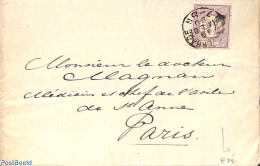 Monsieur le docteur
Magnan
Médecin et chef de l'asile
de Ste Anne
Paris
PostBeeld